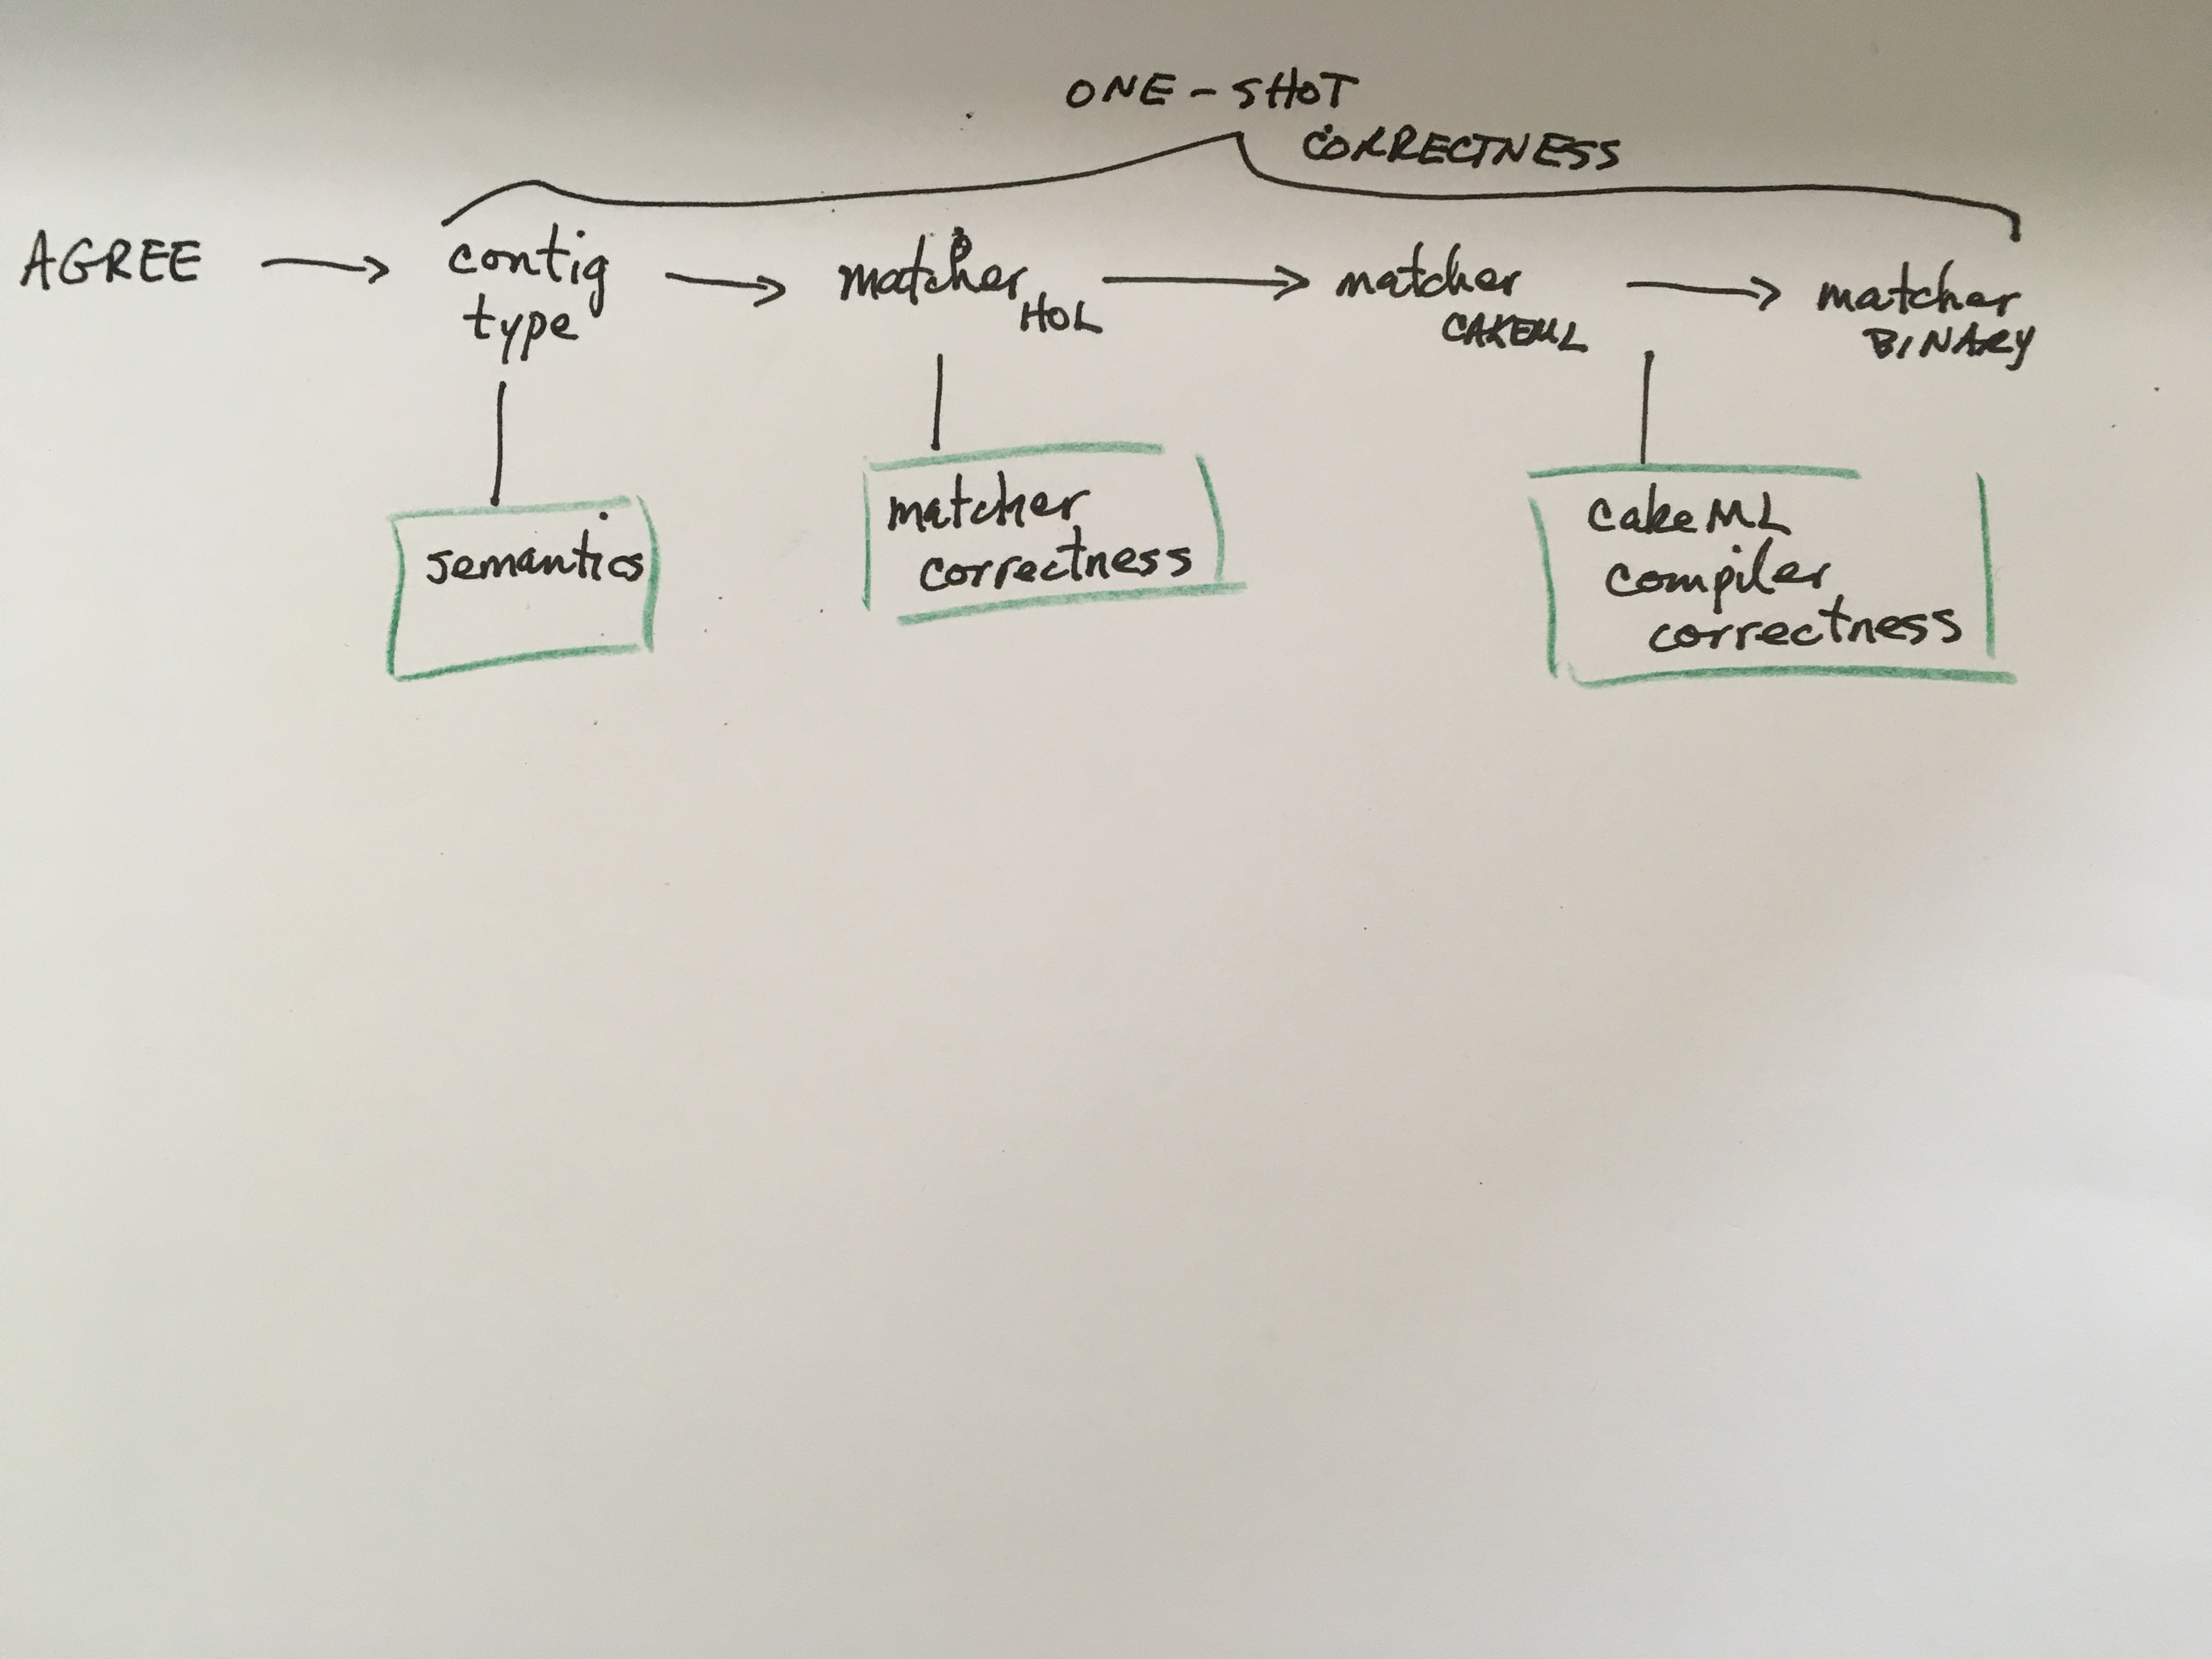 ONE-SHOT
CORRECTNESS
AGREE → contig → matcher → matcher → matcher
type
HOL
CAKEML
BINARY
semantics
matcher
correctness
CakeML
compiler
correctness